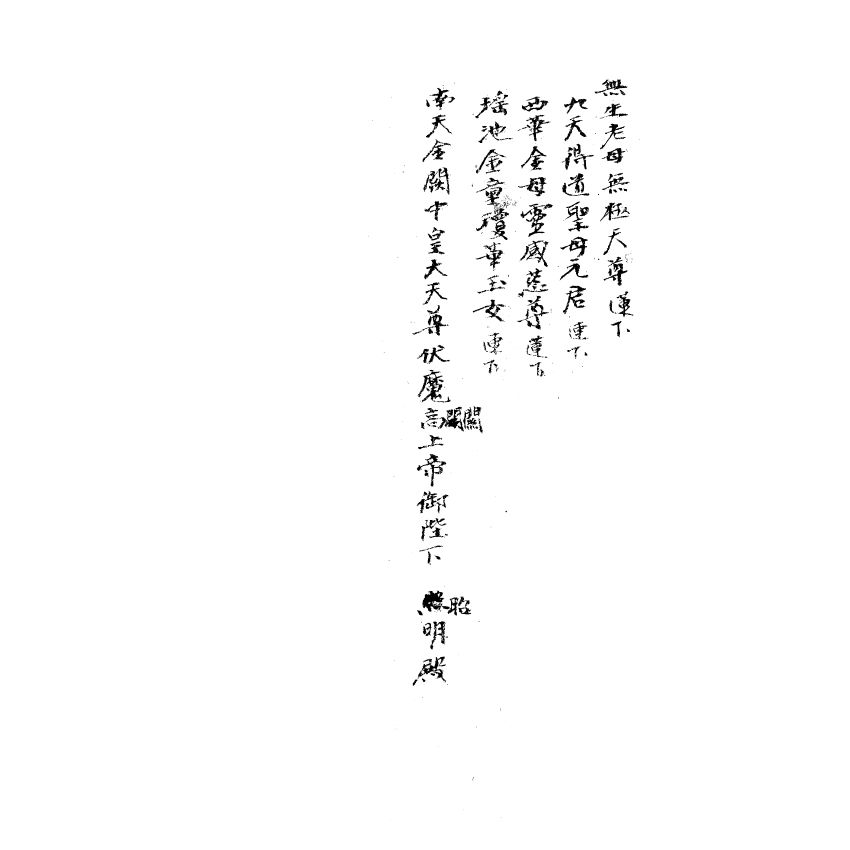 無生老母無極天尊蓮下
九天得道聖母元君蓮下
西華金母靈威慈尊蓮下
瑤池金童瓊華玉女蓮下
南天金闕中皇大天尊伏魔高上帝御陛下 明殿
關
昭